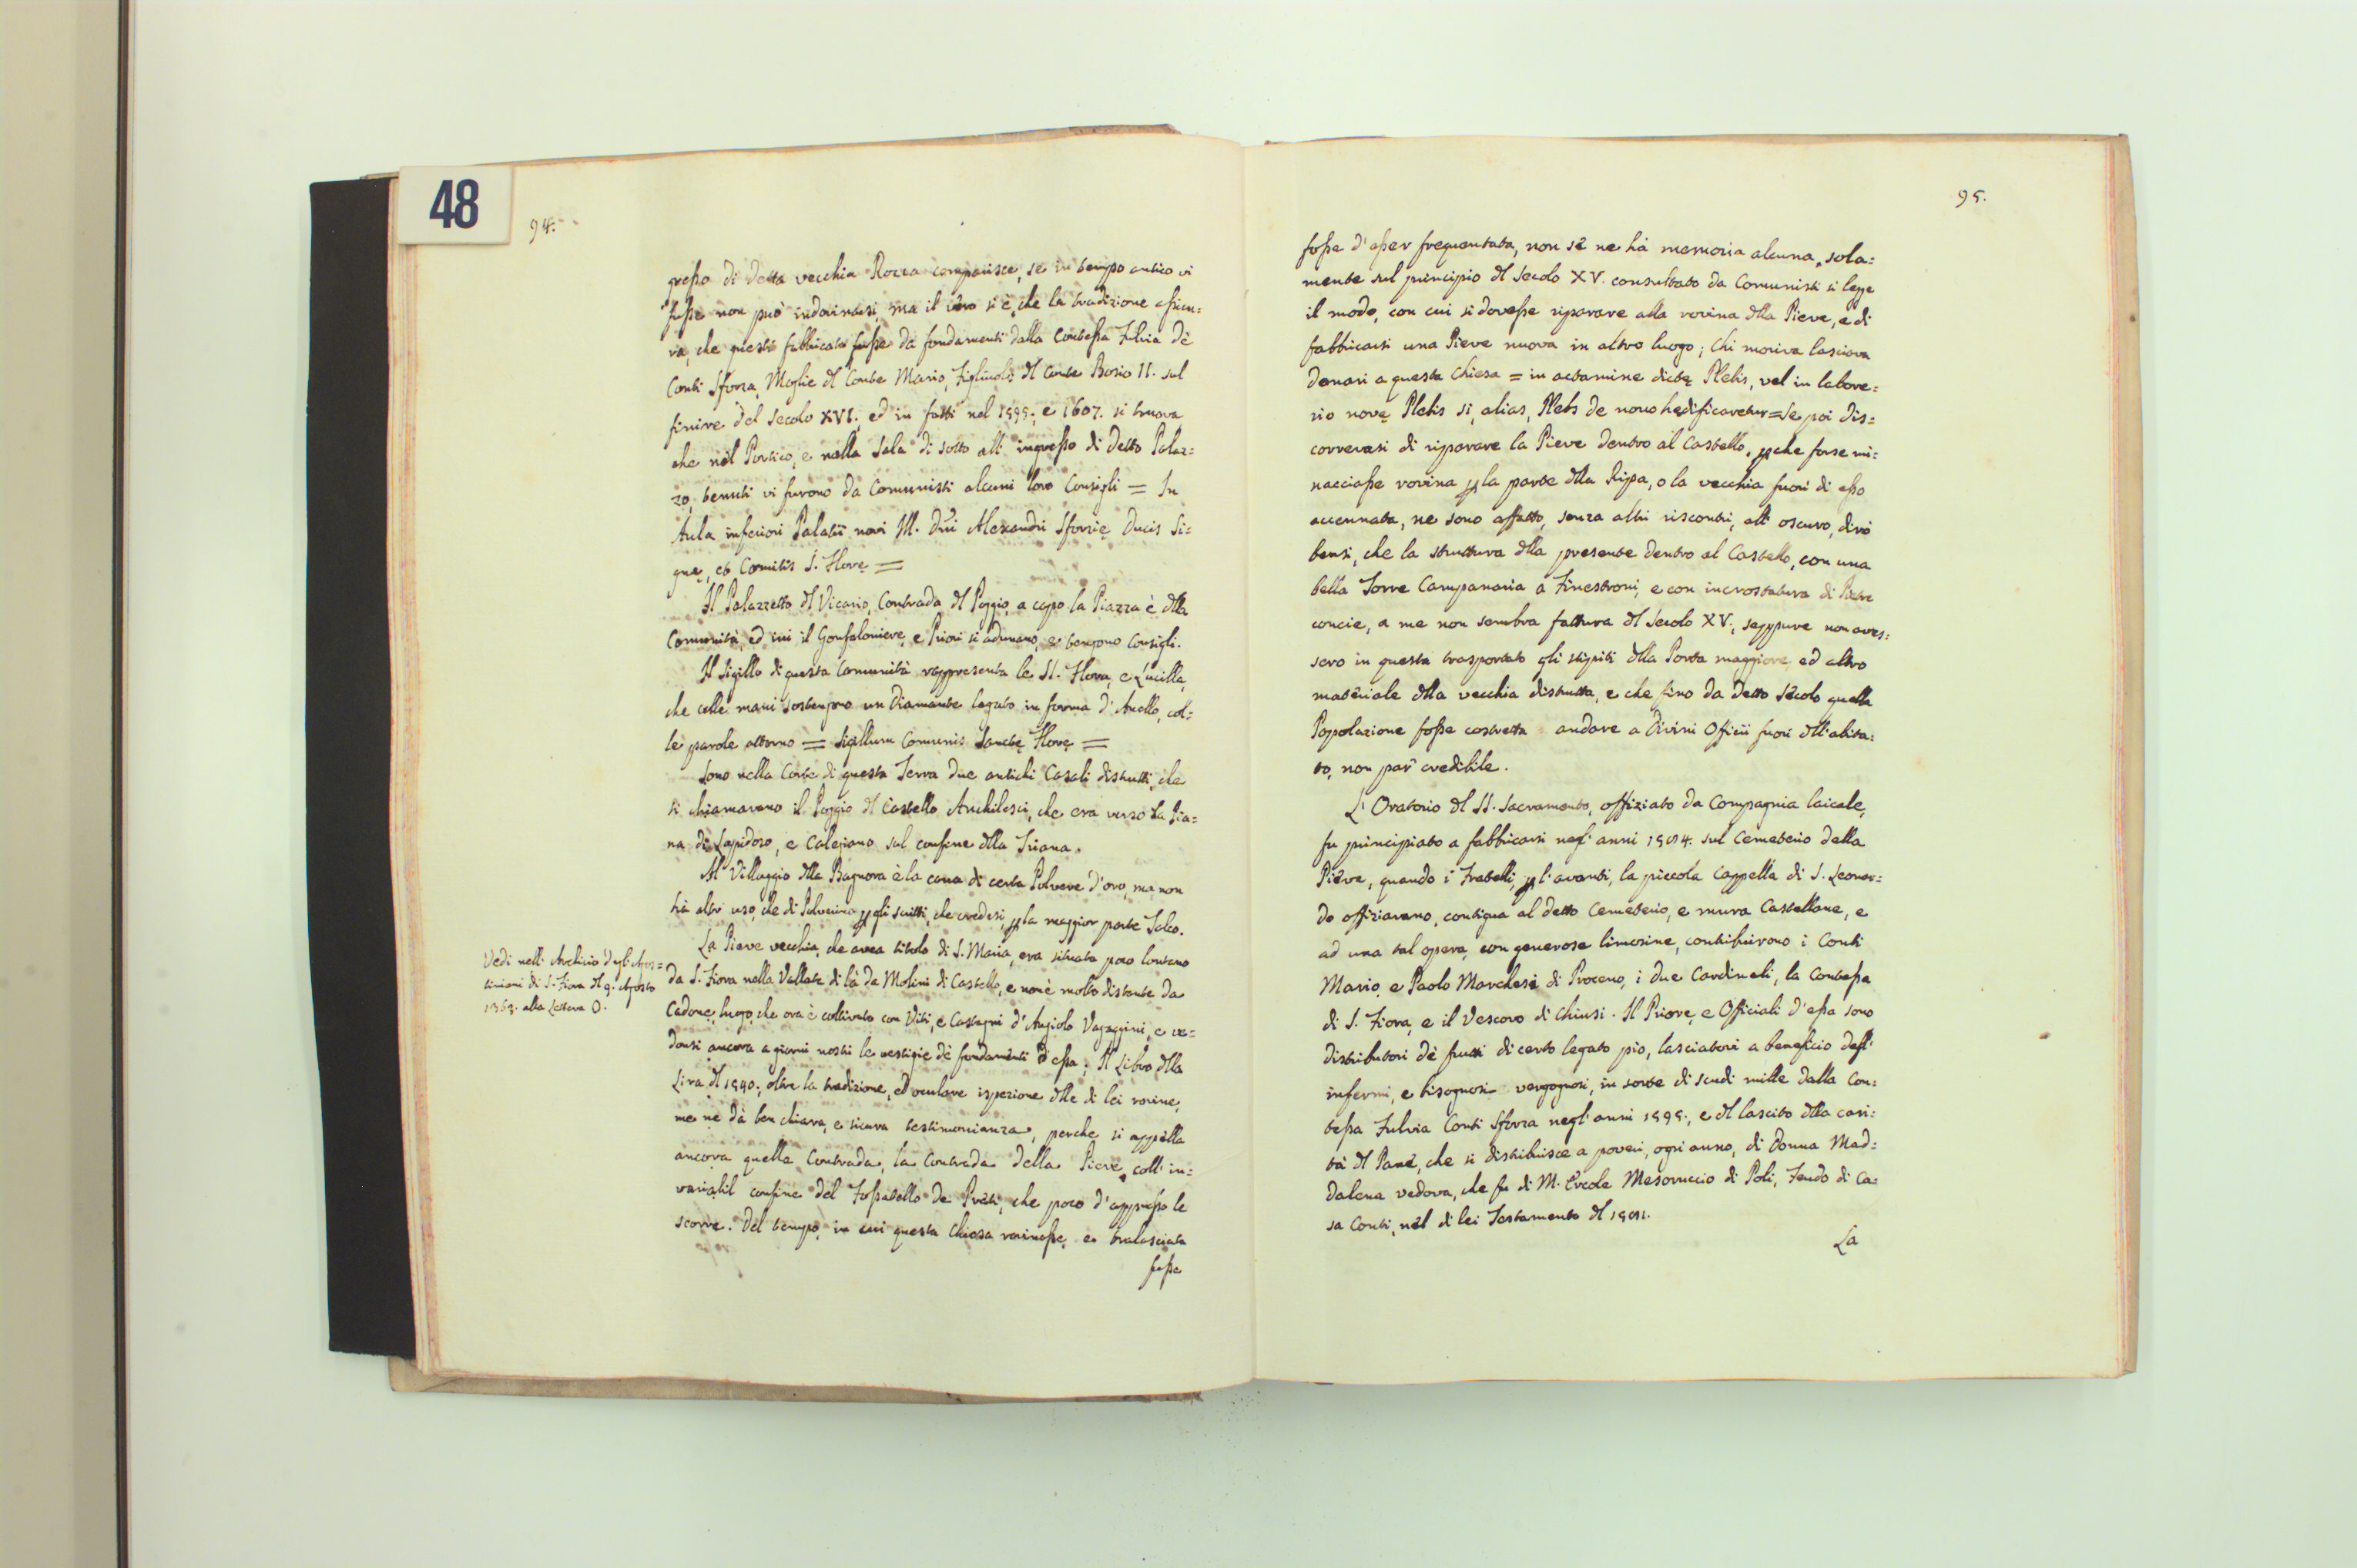 48
94.
gresso di detta vecchia Rocca comparisce, se in tempo antico vi
fusse non può indovinarsi, ma il vero si è, che la tradizione assicu=
ra, che questi fabbricato fusse da fondamenti dalla Contessa Fulvia de
Conti Sforza, Moglie del Conte Mario, Figliuolo del Conte Bosio II. sul
finire del Secolo XVI., ed in fatti nel 1595., e 1607. si truova
che nel Portico, e nella Sala di sotto all' ingresso di detto Palaz=
zo, tenuti vi furono da Comunisti alcuni loro Consigli = In
Aula inferiori Palatii novi Ill. Dñi Alexandri Sfortię Ducis Si=
gnę, et Comitis S. Florę =
Il Palazzetto del Vicario, Contrada del Poggio, a capo la Piazza è della
Comunità, ed ivi il Gonfaloniere, e Priori si adunano, e tengono Consigli.
Il Sigillo di questa Comunità rappresenta le SS. Flora, e Lucilla,
che colle mani sostengono un Diamante legato in forma d' Anello, col=
le parole attorno = Sigillum Comunis Sanctę Florę =
Sono nella Corte di questa Terra due antichi Casali distrutti, che
si chiamavano il Poggio del Castello Anchilesci, che era verso la Pia=
na di Lapidoso, e Calegiano sul confine della Triana.
Al Villaggio della Bagnora è la cava di certa Polvere d'oro, ma non
hà altr' uso, che di Polverino per gli scritti, che credesi per la maggior parte Talco.
La Pieve vecchia, che avea titolo di S. Maria, era situata poco lontano
da S. Fiora nella Vallata di là da Molini di Castello, e non è molto distante da
Cadone, luogo, che ora è coltivato con Viti, e Castagni d' Angiolo Vagaggini, e ve=
donsi ancora a giorni nostri le vestigie de fondamenti d' essa; Il Libro della
Lira del 1540., oltre la tradizione, ed oculare ispezione delle di lei rovine,
me ne dà ben chiara, e sicura testimonianza, perche si appella
ancora quella Contrada, la Contrada della Pieve, coll' in=
variabil confine del Fossatello de Preti, che poco d' appresso le
scorre. Del tempo, in cui questa Chiesa rovinasse, e tralasciata
fosse
Vedi nell' Archivio degl' Agos=
tiniani di S. Fiora del 9. Agosto
1363. alla Lettera O.
95.
fosse d' esser frequentata, non sè ne hà memoria alcuna, sola=
mente sul principio del Secolo XV. consultato da Comunisti si legge
il modo, con cui si dovesse riparare alla rovina della Pieve, e di
fabbricarsi una Pieve nuova in altro luogo; Chi moriva lasciava
denari a questa Chiesa = in actamine dictę Plebis, vel in labore=
rio novę Plebis si, alias, Plebs de novo hedificaretur = Se poi dis=
correvasi di riparare la Pieve dentro al Castello, perche forse mi=
nacciasse rovina per la parte della Ripa, o la vecchia fuori di esso
accennata, ne sono affatto, senza altri riscontri, all' oscuro, dirò
bensi, che la struttura della presente dentro al Castello, con una
bella Torre Campanaria a Finestroni, e con incrostatura di Pietre
concie, a me non sembra fattura del Secolo XV., seppure non aves=
sero in questa trasportato gli stipiti della Porta maggiore, ed altro
materiale della vecchia distrutta, e che fino da detto Secolo quella
Popolazione fosse costretta andare a Divini Officii fuori dell' abita=
to, non par credibile.
L' Oratorio del SS. Sacramento, offiziato da Compagnia laicale,
fu principiato a fabbricarsi negl' anni 1584. sul Cemeterio della
Pieve, quando i Fratelli, per l' avanti, la piccola Cappella di S. Leonar=
do offiziavano, contigua al detto Cemeterio, e mura Castellane, e
ad una tal opera, con generose limosine, contribuirono i Conti
Mario, e Paolo Marchesi di Proceno, i due Cardinali, la Contessa
di S. Fiora, e il Vescovo di Chiusi. Il Priore, e Officiali d' essa sono
distributori de frutti di certo legato pio, lasciatovi a beneficio degl'
infermi, e bisognosi vergognosi, in sorte di scudi mille dalla Con=
tessa Fulvia Conti Sforza negl' anni 1595., e del lascito della cari=
tà del Pane, che si distribuisce a poveri, ogni anno, di Donna Mad=
dalena vedova, che fu di M. Ercole Masoruccio di Poli, Feudo di Ca=
sa Conti, nel di lei Testamento del 1581.
La